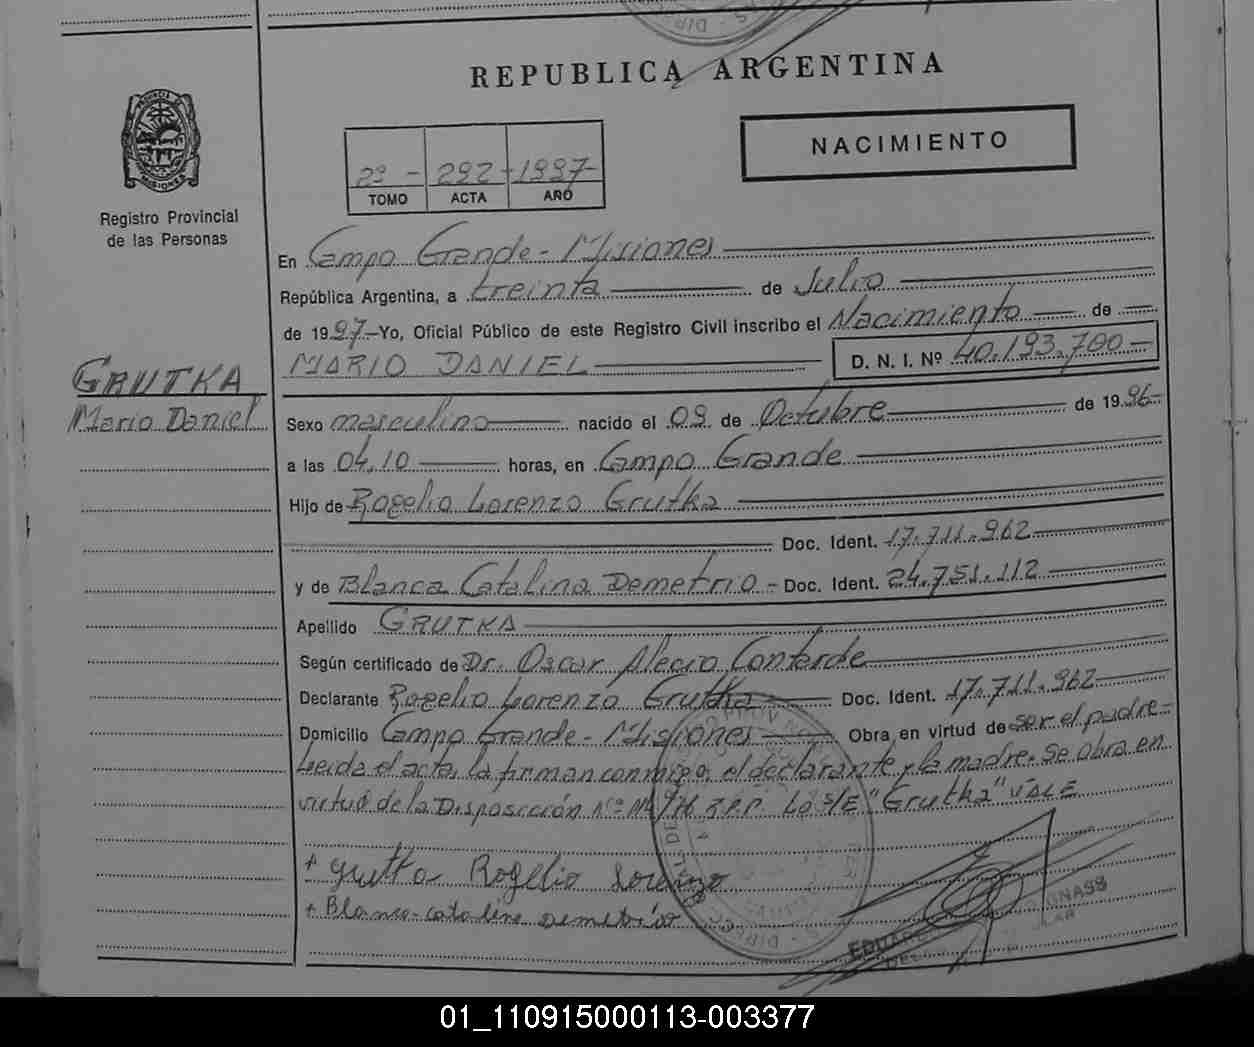 REPUBLICA ARGENTINA
NACIMIENTO
PROVINCIA DE MISIONES
Registro Provincial
de las Personas
29 - 292 - 1997 -
TOMO ACTA AÑO
En Campo Grande - Misiones
República Argentina, a treinta de Julio
de 1997 - Yo, Oficial Público de este Registro Civil inscribo el Nacimiento de
MARIO DANIEL D. N. I. Nº 40.193.700 -
GRUTKA
Mario Daniel
Sexo masculino nacido el 09 de Octubre de 1996 -
a las 04,10 horas, en Campo Grande
Hijo de Rogelio Lorenzo Grutka
Doc. Ident. 17.711.962
y de Blanca Catalina Demetrio - Doc. Ident. 24.751.112
Apellido GRUTKA
Según certificado de Dr. Oscar Alecio Conterde
Declarante Rogelio Lorenzo Grutka Doc. Ident. 17.711.962
Domicilio Campo Grande - Misiones Obra en virtud de ser el padre -
Leída el acta, la firman conmigo, el declarante y la madre. Se obra en
virtud de la Disposición Nº R.P.P. Lo S/E "Grutka" VALE
+ Grutka Rogelio Lorenzo
+ Blanca Catalina Demetrio
01_110915000113-003377